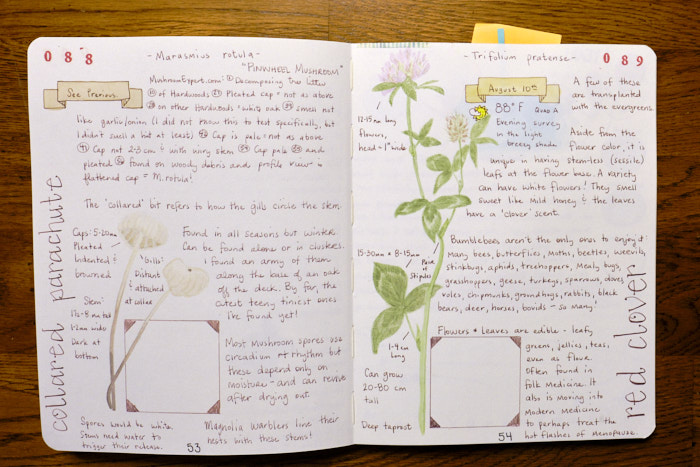 088
- Marasmius rotula -
"PINWHEEL MUSHROOM"
See Previous.
MushroomExpert.com: ① Decomposing tree litter
of Hardwoods Pleated Cap = not as above
on other Hardwoods = white oak smell not
like garlic/onion (I did not know this to test specifically, but
I didn't smell a hat at least) Cap is pale = not as above
Cap not 2-3 cm & with wiry stem Cap pale and
pleated found on woody debris and profile view =
flattened cap = M. rotula!
The 'collared' bit refers to how the gills circle the stem.
collared parachute
Caps: 5-20mm
Pleated
Indented &
browned
'Gills'
Distant
& attached
at collar
Stem:
1.2-8 cm tall
1-2mm wide
Dark at
bottom
Found in all seasons but winter.
Can be found alone or in clusters.
I found an army of them
along the base of an oak
off the deck. By far, the
cutest teeny tiniest ones
I've found yet!
Most Mushroom spores use
circadium rhythm but
these depend only on
moisture - and can revive
after drying out.
Spores would be white.
Stems need water to
trigger their release.
Magnolia warblers line their
nests with these stems!
53
089
- Trifolium pratense -
August 10th
88° F Quad A
Evening survey
in the light
breezy shade
A few of these
are transplanted
with the evergreens.
Aside from the
flower color, it is
unique in having stemless (sessile)
leafs at the flower base. A variety
can have white flowers! They smell
sweet like Mild honey & the leaves
have a 'clover' scent.
12-15mm long
flowers,
head = 1" wide
15-30mm × 8-15mm
Pair of
Stipules
1-4cm
Long
Bumblebees aren't the only ones to enjoy it.
Many bees, butterflies, moths, beetles, weevils,
stinkbugs, aphids, treehoppers, Mealy bugs,
grasshoppers, geese, turkeys, sparrows, doves,
voles, chipmunks, groundhogs, rabbits, black
bears, deer, horses, bovids - so Many!
Flowers & Leaves are edible - leafy
greens, jellies, teas,
even as flour.
Often found in
folk Medicine. It
also is moving into
Modern Medicine
to perhaps treat the
hot flashes of Menopause.
Can grow
20-80 cm
tall
Deep taproot
red clover
54